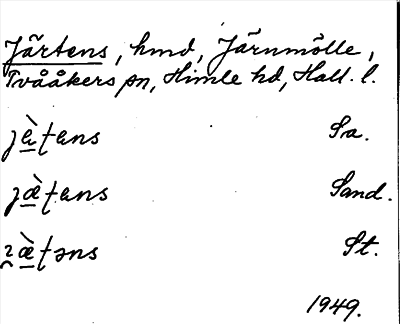 Järtens, hmd, Järnmölle,
Tvååkers sn, Himle hd, Hall. l.
jæ̀tens Sra.
jæ̀tens Sand.
ꝛæ̀təns St.
1949.